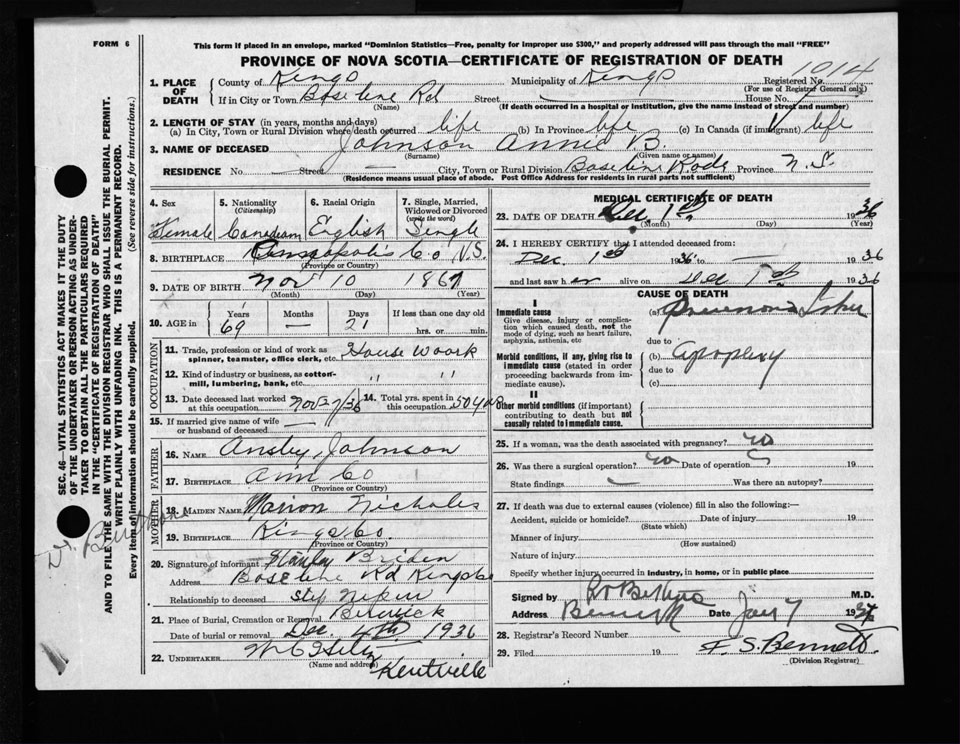 FORM 6
This form if placed in an envelope, marked "Dominion Statistics—Free, penalty for improper use $300," and properly addressed will pass through the mail "FREE"
PROVINCE OF NOVA SCOTIA—CERTIFICATE OF REGISTRATION OF DEATH
1. PLACE OF DEATH County of Kings Municipality of Kings Registered No. 1914
(For use of Registrar General only)
If in City or Town Baseline Rd Street House No.
(Name) (If death occurred in a hospital or institution, give the name instead of street and number)
2. LENGTH OF STAY (in years, months and days)
(a) In City, Town or Rural Division where death occurred life (b) In Province life (c) In Canada (if immigrant) life
3. NAME OF DECEASED Johnson Annie B.
(Surname) (Given name or names)
RESIDENCE No. — Street City, Town or Rural Division Baseline Rode Province N.S.
(Residence means usual place of abode. Post Office Address for residents in rural parts not sufficient)
4. Sex 5. Nationality (Citizenship) 6. Racial Origin 7. Single, Married, Widowed or Divorced (write the word)
Female Canadian English Single
8. BIRTHPLACE Annapolis Co N.S.
(Province or Country)
9. DATE OF BIRTH Nov 10 1867
(Month) (Day) (Year)
10. AGE in Years Months Days If less than one day old
69 — 21 hrs. or min.
OCCUPATION
11. Trade, profession or kind of work as spinner, teamster, office clerk, etc. House Woork
12. Kind of industry or business, as cotton-mill, lumbering, bank, etc. " "
13. Date deceased last worked at this occupation Nov 27/36 14. Total yrs. spent in this occupation 50 yrs
15. If married give name of wife or husband of deceased —
FATHER
16. NAME Ansley Johnson
17. BIRTHPLACE Ann Co
(Province or Country)
MOTHER
18. MAIDEN NAME Marion Nichols
19. BIRTHPLACE Kings Co.
(Province or Country)
20. Signature of informant Stanley Briden
Address Baseline Rd Kings Co
Relationship to deceased step
21. Place of Burial, Cremation or Removal Berwick
Date of burial or removal Dec. 4th 1936
22. UNDERTAKER
(Name and address) Kentville
MEDICAL CERTIFICATE OF DEATH
23. DATE OF DEATH Dec 1st 1936
(Month) (Day) (Year)
24. I HEREBY CERTIFY that I attended deceased from:
Dec. 1st 1936 to — 1936
and last saw her alive on Dec 1st 1936
CAUSE OF DEATH
I
Immediate cause
Give disease, injury or complication which caused death, not the mode of dying, such as heart failure, asphyxia, asthenia, etc
(a) Pneumonia
due to
Morbid conditions, if any, giving rise to immediate cause (stated in order proceeding backwards from immediate cause).
(b) apoplexy
due to
(c)
II
Other morbid conditions (if important) contributing to death but not causally related to immediate cause.
25. If a woman, was the death associated with pregnancy? no
26. Was there a surgical operation? no Date of operation 19
State findings — Was there an autopsy?
27. If death was due to external causes (violence) fill in also the following:—
Accident, suicide or homicide? Date of injury 19
(State which)
Manner of injury
(How sustained)
Nature of injury
Specify whether injury occurred in industry, in home, or in public place
Signed by M.D.
Address Berwick Date Jan 7 1937
28. Registrar's Record Number
29. Filed 19 F. S. Bennett
(Division Registrar)
SEC. 46—VITAL STATISTICS ACT MAKES IT THE DUTY
OF THE UNDERTAKER OR PERSON ACTING AS UNDERTAKER TO OBTAIN ALL THE PARTICULARS REQUIRED
IN THE "CERTIFICATE OF REGISTRATION OF DEATH"
AND TO FILE THE SAME WITH THE DIVISION REGISTRAR WHO SHALL ISSUE THE BURIAL PERMIT.
WRITE PLAINLY WITH UNFADING INK. THIS IS A PERMANENT RECORD.
Every item of information should be carefully supplied. (See reverse side for instructions.)